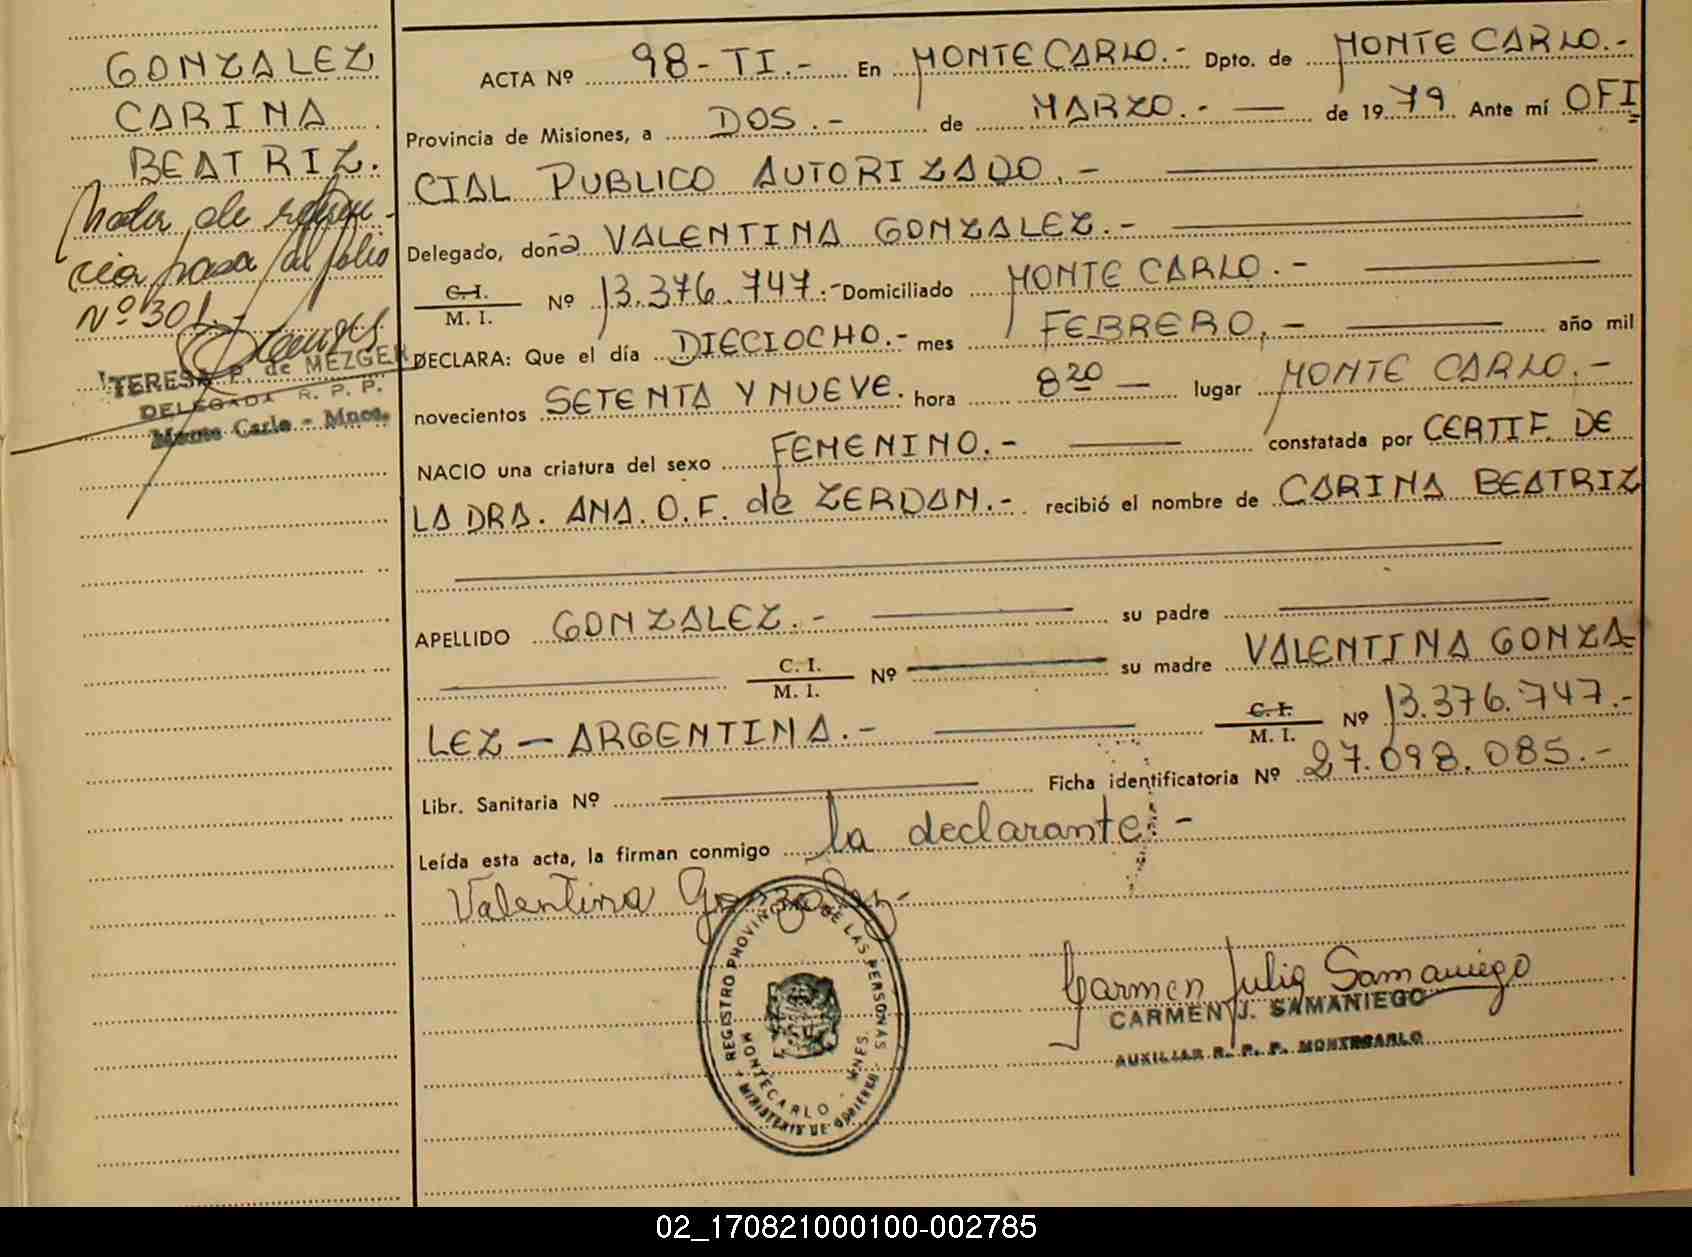 GONZALEZ
CARINA
BEATRIZ.
Nota de referen-
cia pasa al folio
Nº 301.-
TERESA P. de MEZGER
DELEGADA R. P. P.
Monte Carlo - Mnes.
ACTA Nº 98-TI.- En MONTECARLO.- Dpto. de MONTE CARLO.-
Provincia de Misiones, a DOS.- de MARZO.- de 1979 Ante mí OFI
CIAL PUBLICO AUTORIZADO.-
Delegado, doña VALENTINA GONZALEZ.-
C.I. M. I. Nº 13.376.747.- Domiciliado MONTE CARLO.-
DECLARA: Que el día DIECIOCHO.- mes FEBRERO.- año mil
novecientos SETENTA Y NUEVE. hora 8 20 lugar MONTE CARLO.-
NACIO una criatura del sexo FEMENINO.- constatada por CERTIF. DE
LA DRA. ANA. O. F. de ZERDAN.- recibió el nombre de CARINA BEATRIZ
APELLIDO GONZALEZ.- su padre
C. I. M. I. Nº su madre VALENTINA GONZA=
LEZ - ARGENTINA.- C. I. M. I. Nº 13.376.747.-
Libr. Sanitaria Nº Ficha identificatoria Nº 27.098.085.-
Leída esta acta, la firman conmigo la declarante.-
Valentina Gonzalez-
REGISTRO PROVINCIAL DE LAS PERSONAS
MONTECARLO - MNES.
MINISTERIO DE GOBIERNO
Carmen Julia Samaniego
CARMEN J. SAMANIEGO
AUXILIAR R. P. P. MONTECARLO
02_170821000100-002785